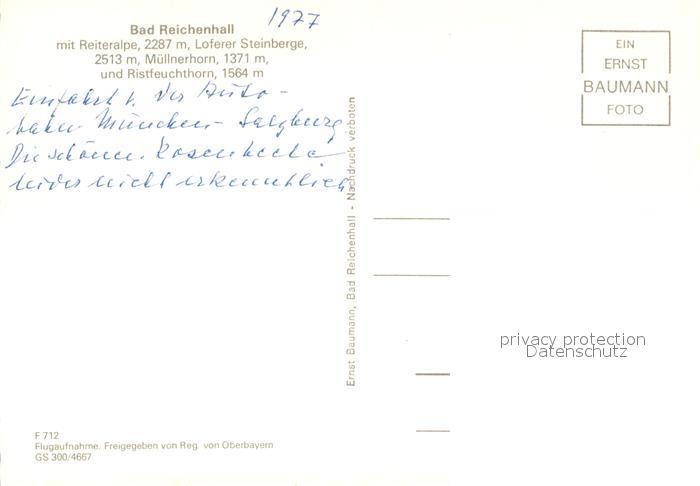 1977
Bad Reichenhall
mit Reiteralpe, 2287 m, Loferer Steinberge,
2513 m, Müllnerhorn, 1371 m,
und Ristfeuchthorn, 1564 m
EIN
ERNST
BAUMANN
FOTO
Einfahrt v. der Auto-
bahn München - Salzburg
Die schöne Rosenhecke
leider nicht erkenntlich
Ernst Baumann, Bad Reichenhall - Nachdruck verboten
privacy protection
Datenschutz
F 712
Flugaufnahme. Freigegeben von Reg. von Oberbayern
GS 300/4667